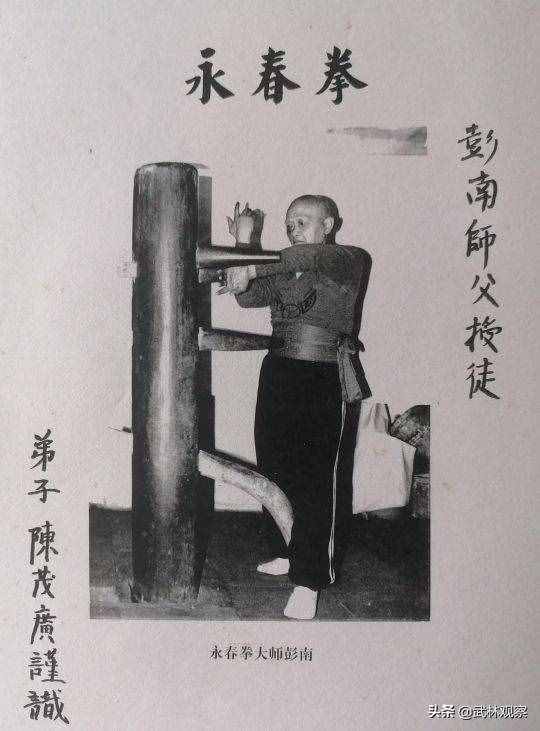 永春拳
彭南師父授徒
弟子 陳茂廣謹識
永春拳大师彭南
头条 @武林观察